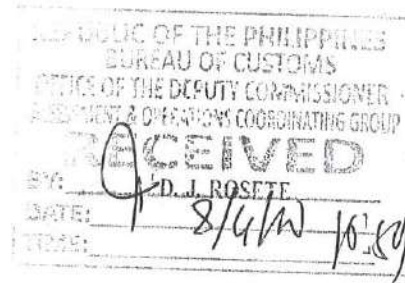 REPUBLIC OF THE PHILIPPINES
BUREAU OF CUSTOMS
OFFICE OF THE DEPUTY COMMISSIONER
ASSESSMENT & OPERATIONS COORDINATING GROUP
RECEIVED
BY: D. J. ROSETE
DATE:
TIME: